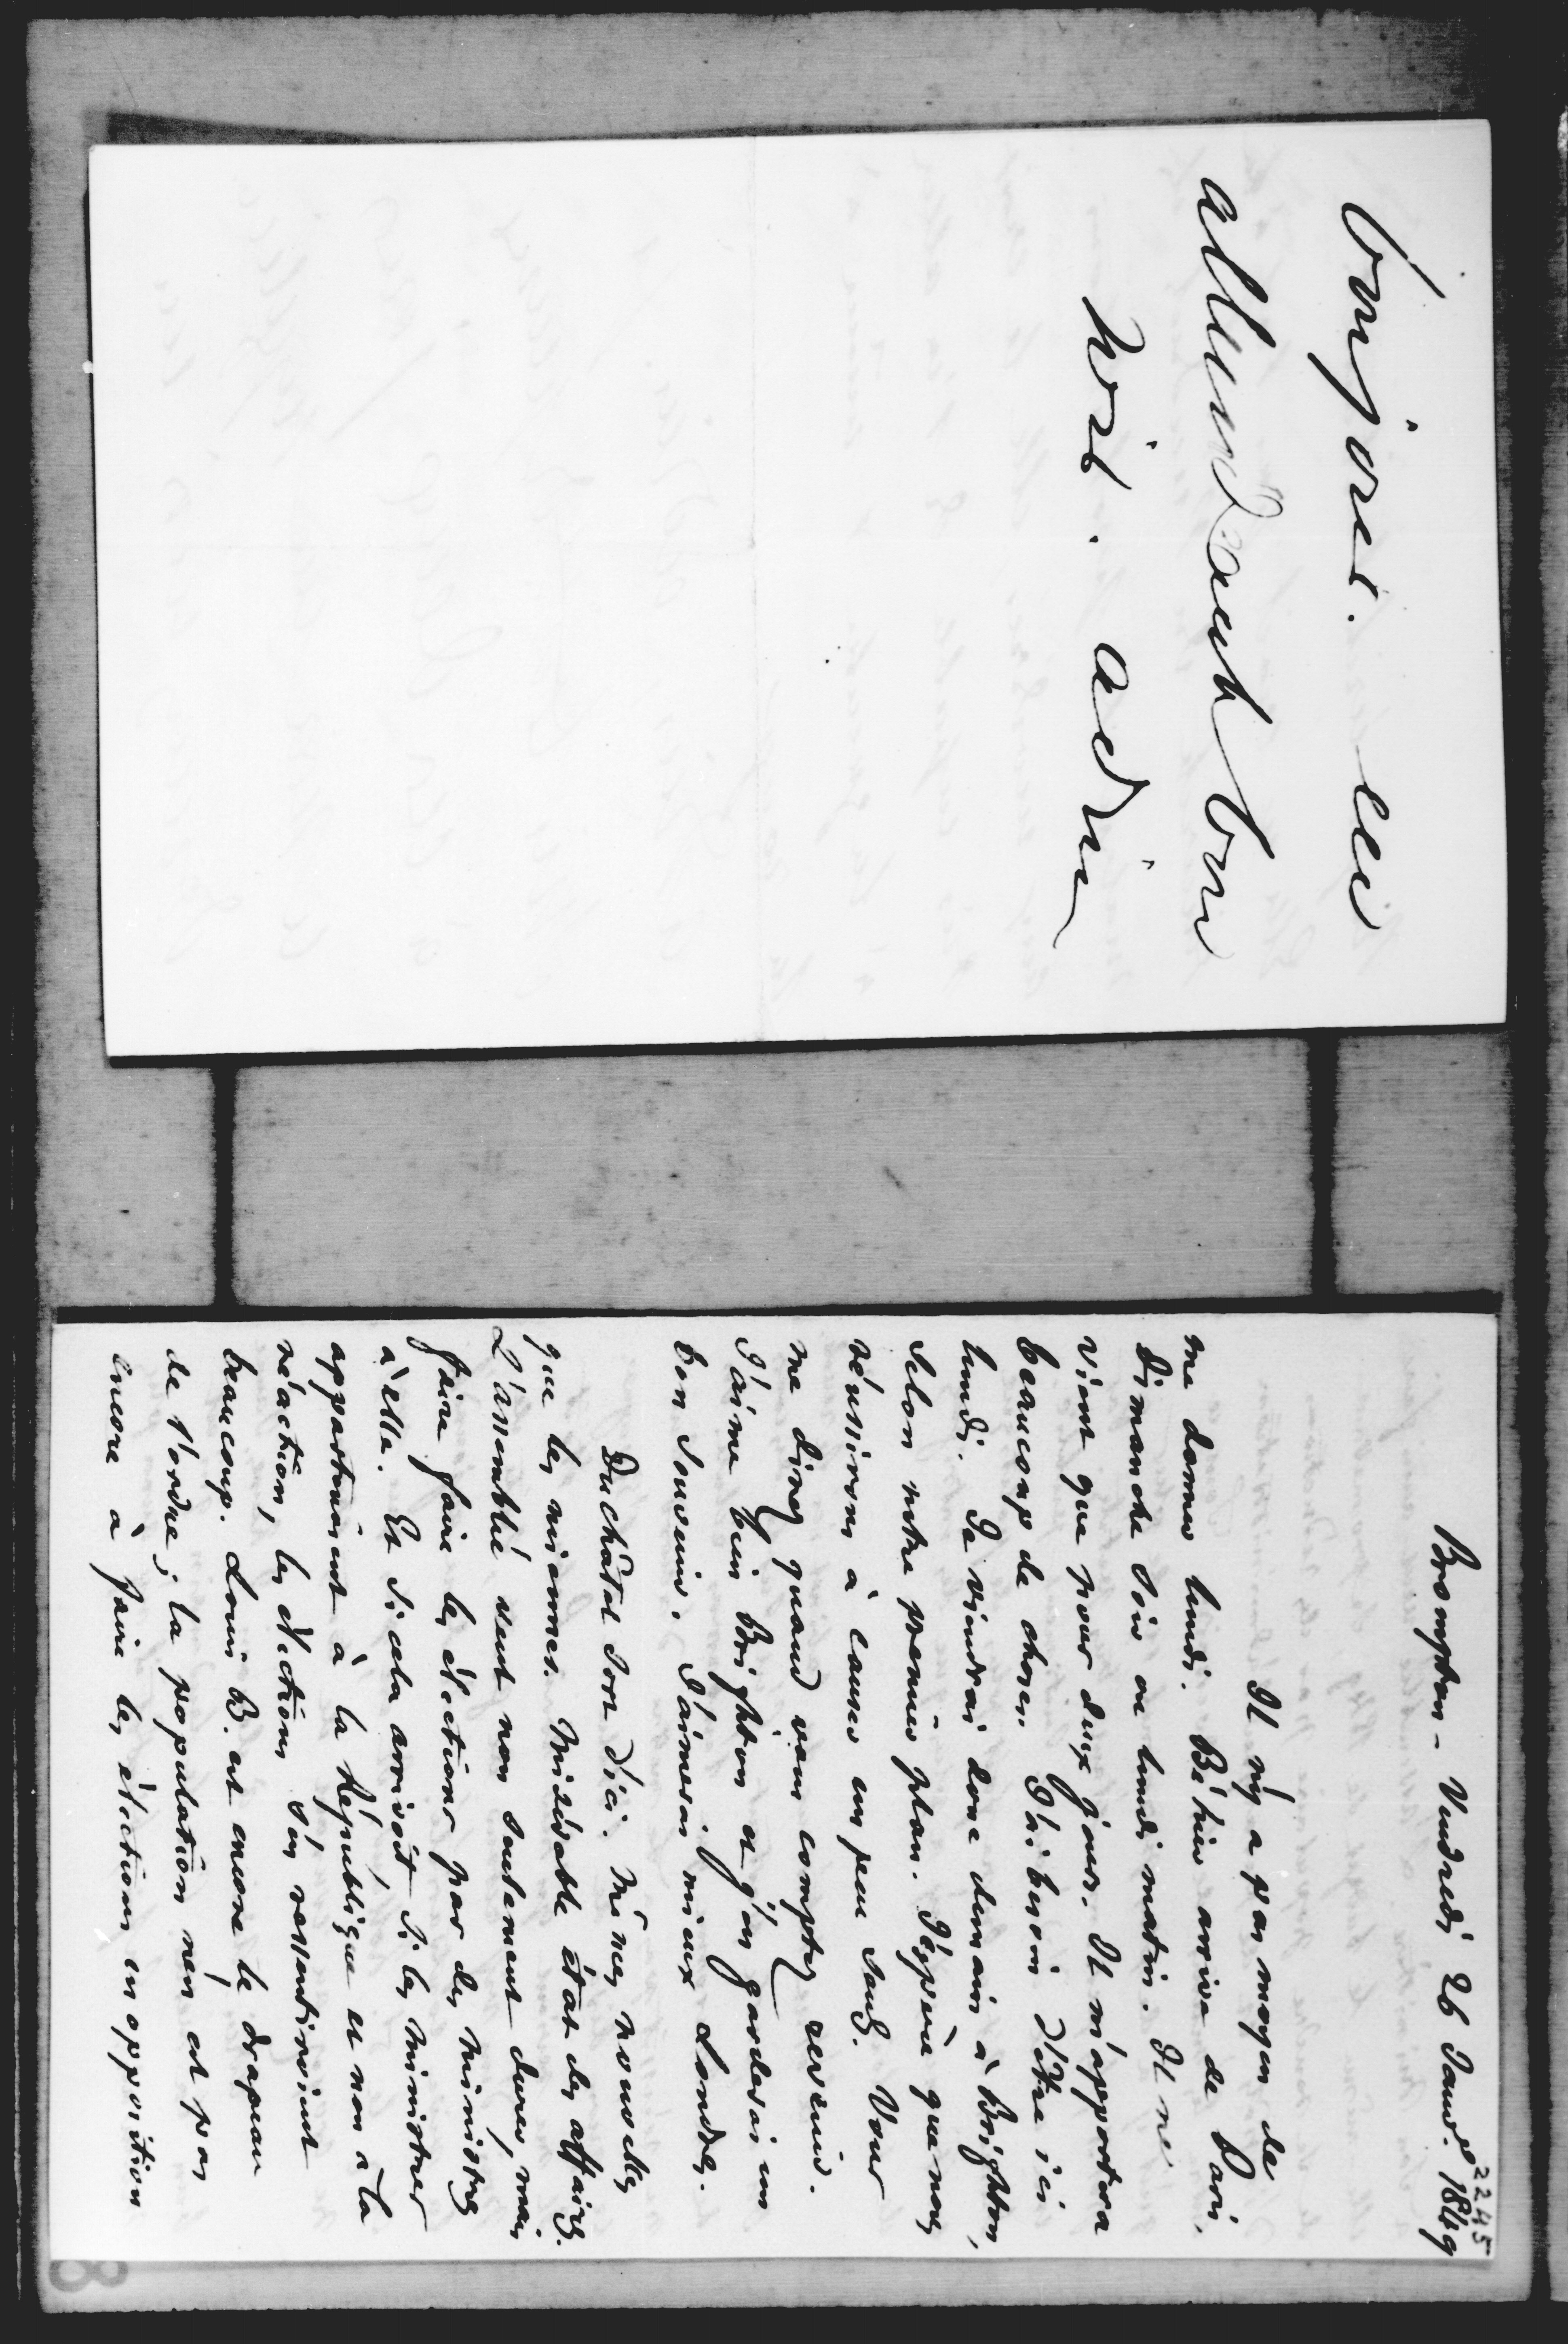 bonjour. Les
allemand sont bons
noir. adieu
2245
Brompton - Vendredi 26 Janv. 1849
Il n'y a pas moyen de
me donner lundi. Béhier arrive de Paris,
Dimanche soir ou lundi matin. Il ne
vient que pour deux jours. Il m'apportera
beaucoup de choses. J'ai besoin d'être ici
lundi. Je viendrai donc demain à Brighton,
selon notre premier plan. J'espère que nous
réussirons à causer un peu seuls. Vous
me direz quand vous comptez revenir.
J'aime bien Brighton et j'en garderai un
bon souvenir. J'aimerai mieux Londres.
Duchâtel sort d'ici. Mêmes nouvelles
que les miennes. Misérable état des affaires.
L'assemblée veut non seulement durer, mais
faire faire les élections par des ministres
à elle. Et si cela arrivait, si les ministres
appartenoient à la République et non à la
réaction, les élections s'en ressentiroient
beaucoup. Louis B. est encore le drapeau
de l'ordre ; la population n'en est pas
encore à faire les élections en opposition